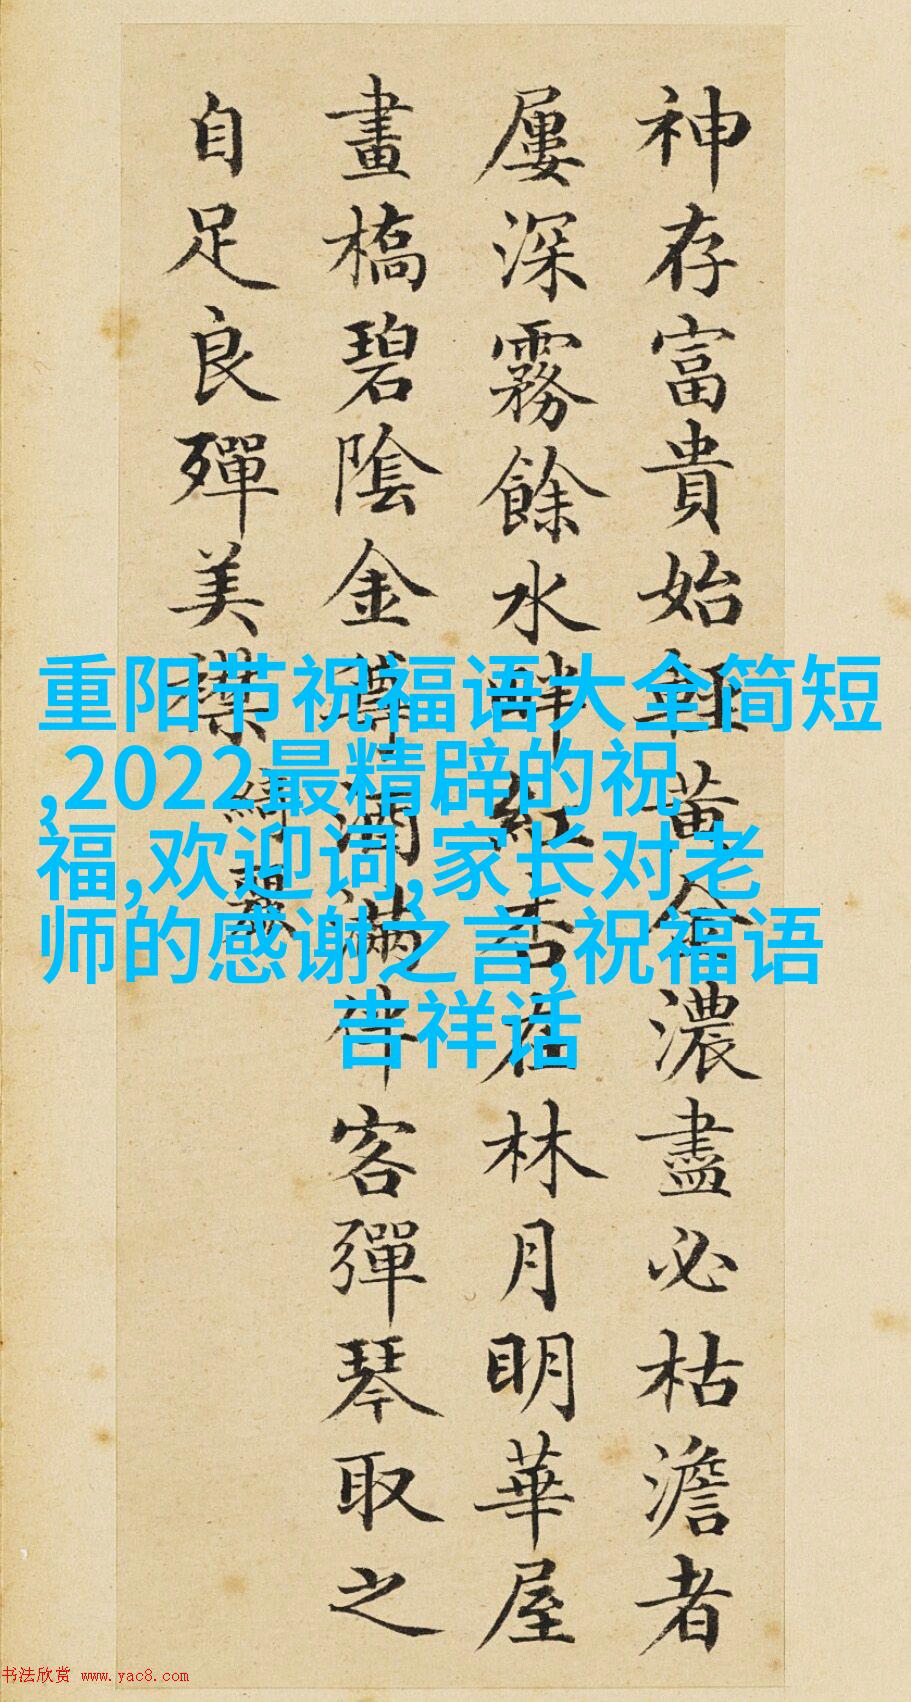 神存富貴始輕黃金濃盡必枯澹者
屢深霧餘水畔紅杏在林月明華屋
畫橋碧陰金酒滿伴客彈琴取之
自足良殫美襟
綺麗
重阳节祝福语大全简短
,2022最精辟的祝
福,欢迎词,家长对老
师的感谢之言,祝福语
吉祥话
书法欣赏 www.yac8.com